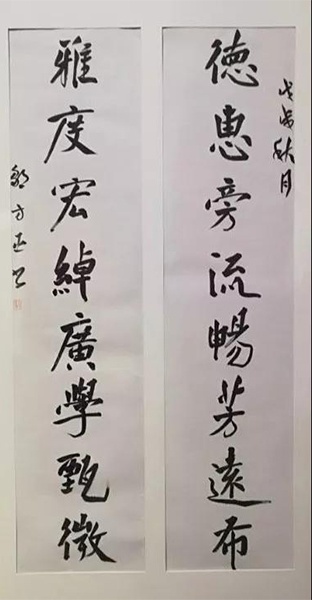 戊戌秋月
德惠旁流暢芳遠布
雅度宏綽廣學甄微
方正书